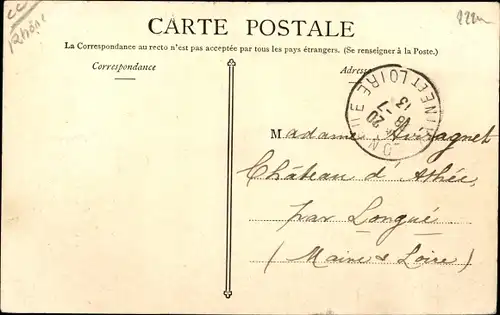 CC
Rhône
CARTE POSTALE
La Correspondance au recto n'est pas acceptée par tous les pays étrangers. (Se renseigner à la Poste.)
Correspondance
Adresse
MAINE ET LOIRE
20
18-7
13
Madame Aviragnet
Château d'Athée,
par Longué
(Maine & Loire)